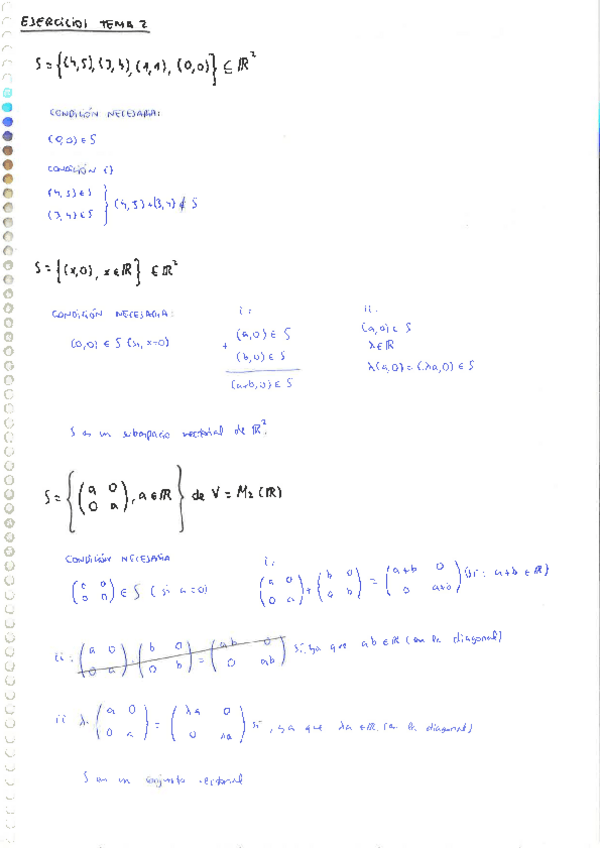 EJERCICIOS TEMA 2
S = {(4,5), (3,4), (1,1), (0,0)} ⊆ ℝ²
CONDICIÓN NECESARIA:
(0,0) ∈ S
CONDICIÓN i)
(4,5) ∈ S
(3,4) ∈ S } (4,5)+(3,4) ∉ S
S = {(x,0), x ∈ ℝ} ∈ ℝ²
CONDICIÓN NECESARIA:
(0,0) ∈ S (si, x=0)
i:
(a,0) ∈ S
+ (b,0) ∈ S
(a+b,0) ∈ S
ii.
(a,0) ∈ S
λ ∈ ℝ
λ(a,0) = (λa,0) ∈ S
S es un subespacio vectorial de ℝ².
S = { (a 0; 0 a), a ∈ ℝ } de V = M₂(ℝ)
CONDICIÓN NECESARIA
(0 0; 0 0) ∈ S (si a=0)
i.
(a 0; 0 a) + (b 0; 0 b) = (a+b 0; 0 a+b) (si: a+b ∈ ℝ)
ii: (a 0; 0 a) · (b 0; 0 b) = (ab 0; 0 ab) si, ya que ab ∈ ℝ (en la diagonal)
ii λ · (a 0; 0 a) = (λa 0; 0 λa) si, ya que λa ∈ ℝ (en la diagonal)
S es un conjunto vectorial